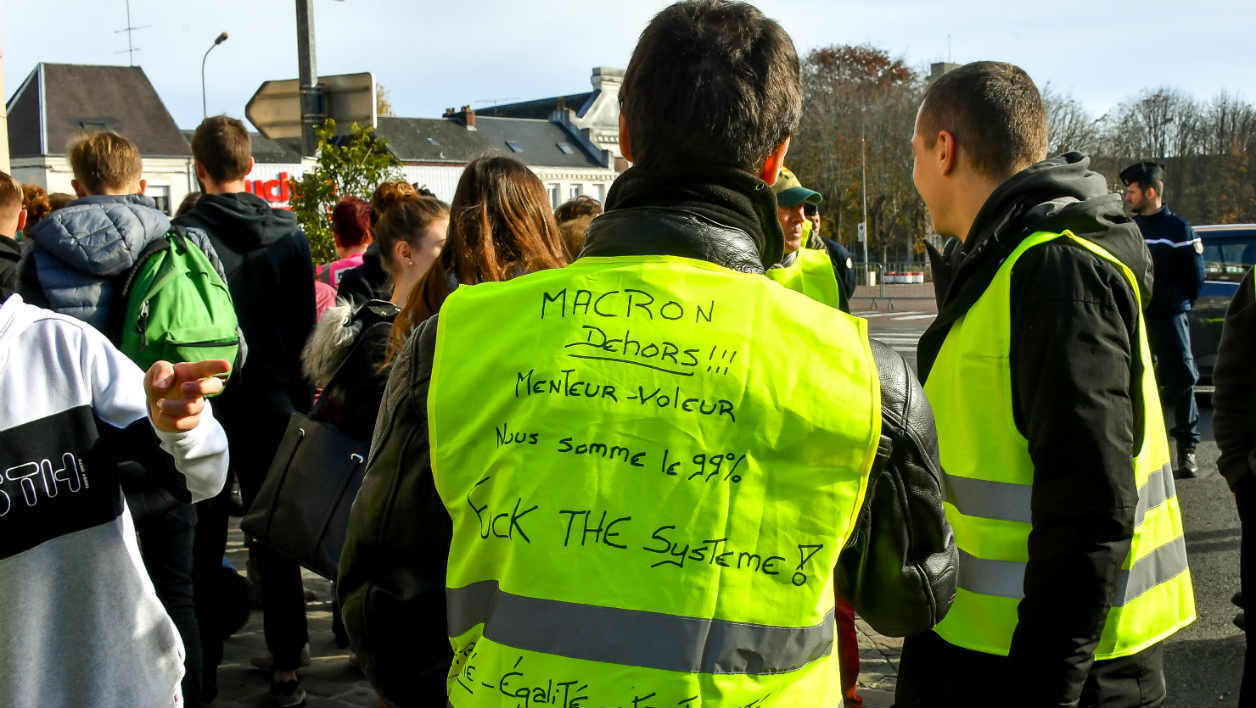 MACRON
DEHORS!!!
MENTEUR-VOLEUR
NOUS SOMME LE 99%
FUCK THE SYSTEME!
ÉGALITÉ
uch
STH